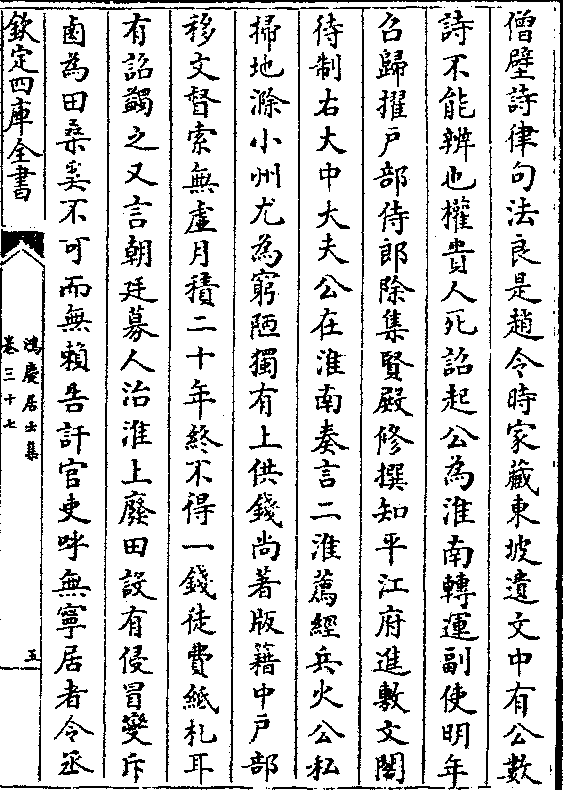 僧壁詩律句法良是趙令時家藏東坡遺文中有公數
詩不能辨也權貴人死詔起公為淮南轉運副使明年
召歸擢户部侍郎除集賢殿修撰知平江府進敷文閣
待制右大中大夫公在淮南奏言二淮薦經兵火公私
掃地滁小州尤為窮陋獨有上供錢尚著版籍中户部
移文督索無虛月積二十年終不得一錢徒費紙札耳
有詔蠲之又言朝廷募人治淮上廢田設有侵冒變斥
鹵為田桑奚不可而無賴告訐官吏呼無寧居者令丞
欽定四庫全書
鴻慶居士集
卷三十七
五